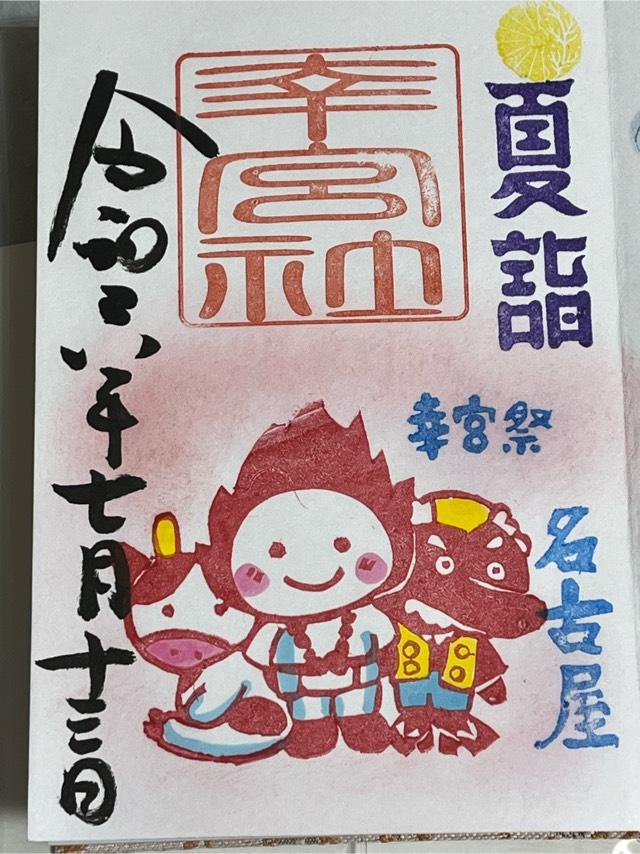 夏詣
幸宮社
幸宮祭
名古屋
令和六年七月十三日